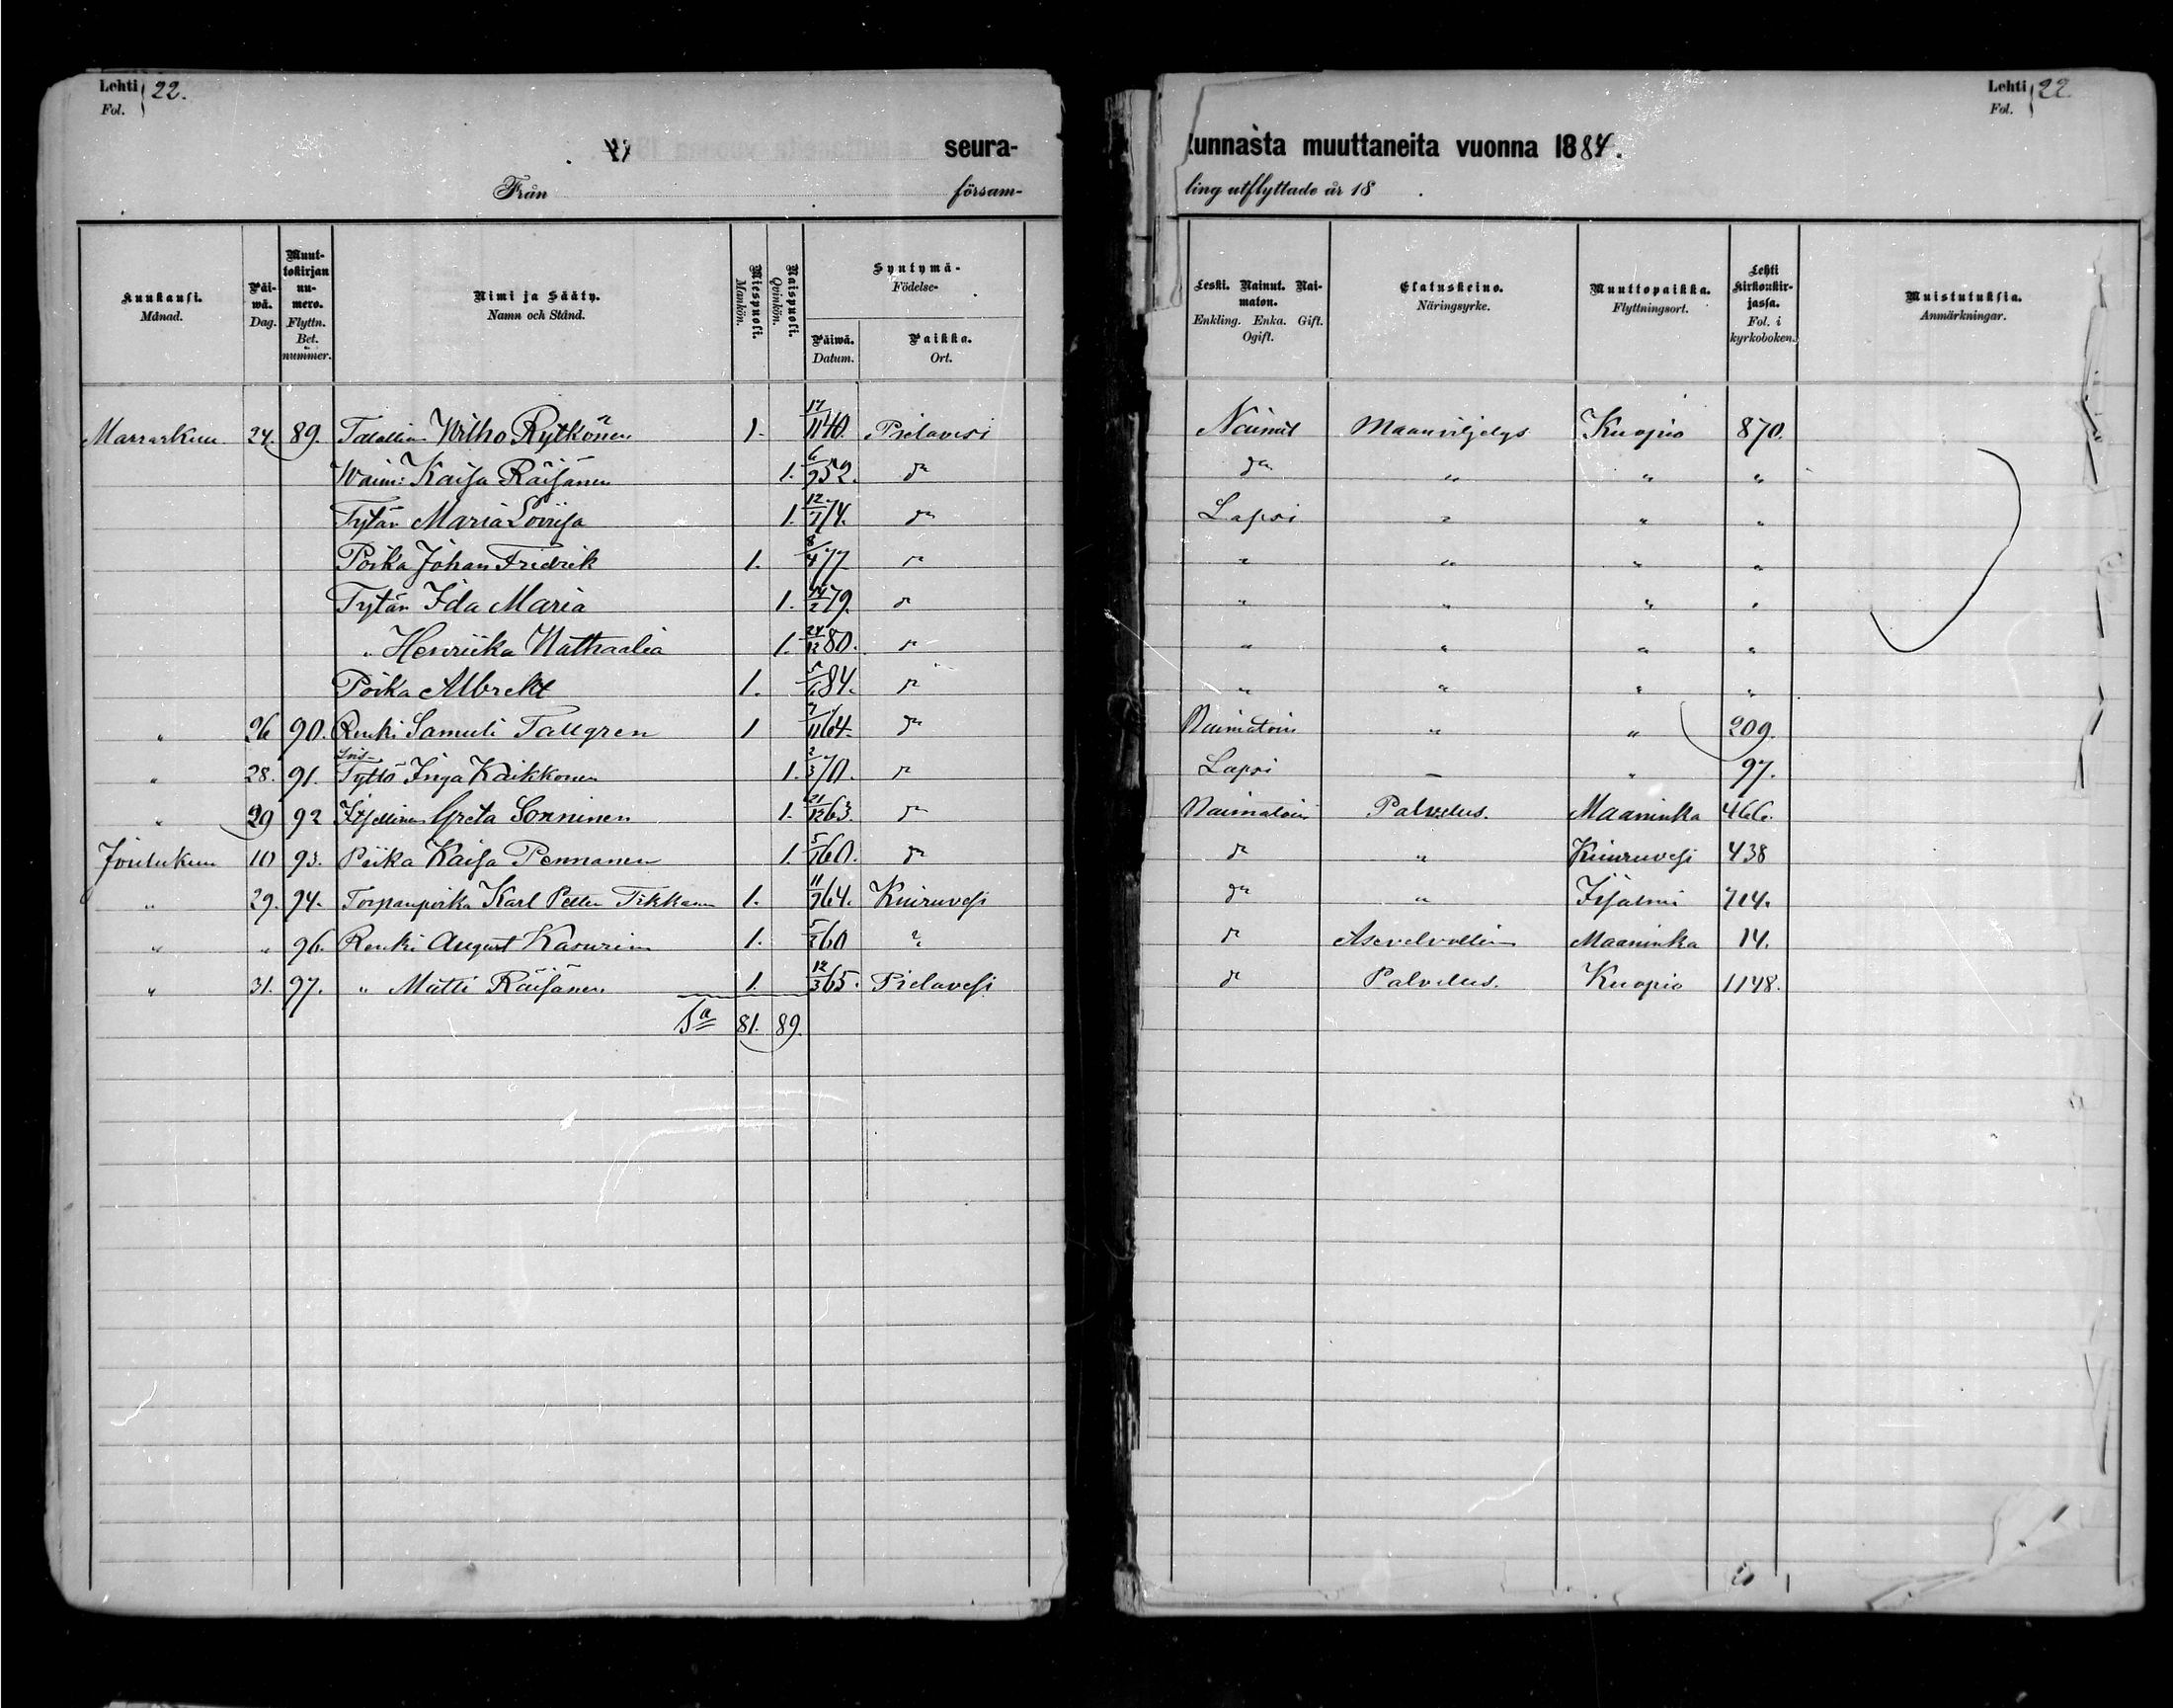 Lehti 22. Lehti 22
Fol. Fol.
seura- kunnasta muuttaneita vuonna 1884.
Från försam- ling utflyttade år 18
Kuukausi. Månad. Päiwä. Dag. Muuttokirjan nu-mero. Flyttn. Bet. nummer. Nimi ja Sääty. Namn och Stånd. Miespuoli. Mankön. Naispuoli. Qvinkön. Syntymä- Födelse- Päiwä. Datum. Paikka. Ort. Leski. Nainut. Naimaton. Enkling. Enka. Gift. Ogift. Elatuskeino. Näringsyrke. Muuttopaikka. Flyttningsort. Lehti kirkonkirjassa. Fol. i kyrkoboken. Muistutuksia. Anmärkningar.
Marraskuu 24. 89. Talollinen Wilho Rytkönen 1. 17/11 40. Pielavesi Nainut Maanviljelys Kuopio 870.
Waim: Kaisa Räisänen 1. 6/9 52. do do " " "
Tytär Maria Lovisa 1. 12/7 74. do Lapsi " " "
Poika Johan Fredrik 1. 8/4 77 do " " " "
Tytär Ida Maria 1. 2 79. do " " " "
" Henriika Nathaalia 1. 24/12 80. do " " " "
Poika Albrekt 1. 5/6 84. do " " " "
" 26 90. Renki Samuli Tallgren 1 7/11 64. do Naimatoin " " 209.
" 28. 91. Tyttö Inga Kaikkonen 1. 2/3 70. do Lapsi – " 97.
" 29 92 Itsellinen Greta Sonninen 1. 21/12 63. do Naimatoin Palvelus. Maaninka 466.
Joulukuu 10 93. Piika Kaisa Pennanen 1. 5/1 60. do do " Kiuruvesi 438
" 29. 94. Torpanpoika Karl Petter Tikkanen 1. 11/9 64. Kiuruvesi do " Iisalmi 714.
" " 96. Renki August Kasurinen 1. 5/2 60 " do Asevelvollinen Maaninka 14.
" 31. 97. " Matti Räisänen 1. 12/3 65. Pielavesi do Palvelus. Kuopio 1148.
Sa 81. 89.